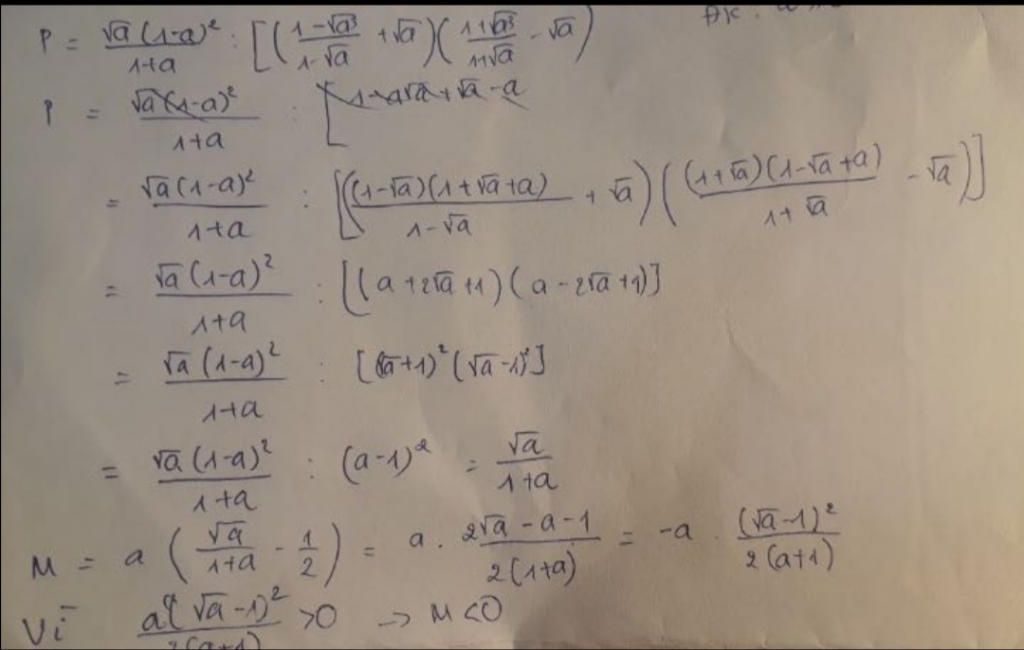 P = √a (1-a)² / 1+a : [ ( 1-√a³ / 1-√a + √a ) ( 1+√a³ / 1+√a - √a )
P = √a (1-a)² / 1+a : [ 1+a√a+√a-a
= √a (1-a)² / 1+a : [ ( (1-√a)(1+√a+a) / 1-√a + √a ) ( (1+√a)(1-√a+a) / 1+√a - √a ) ]
= √a (1-a)² / 1+a : [(a+2√a+1)(a-2√a+1)]
= √a (1-a)² / 1+a : [(√a+1)² (√a-1)²]
= √a (1-a)² / 1+a : (a-1)² = √a / 1+a
M = a ( √a / 1+a - 1/2 ) = a . 2√a - a - 1 / 2(1+a) = -a . (√a-1)² / 2(a+1)
Vì a(√a-1)² / 2(a+1) >0 → M<0